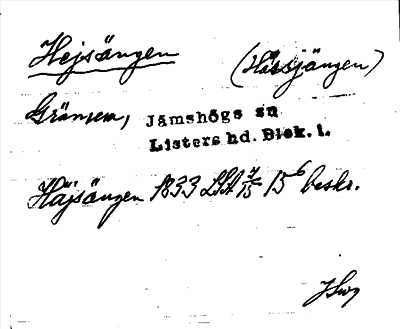 Hejsängen (Hässjängen)
Gränum, Jämshögs sn
Listers hd. Blek. l.
Häjsängen 1833 LSA 7/15 15⁶ beskr.